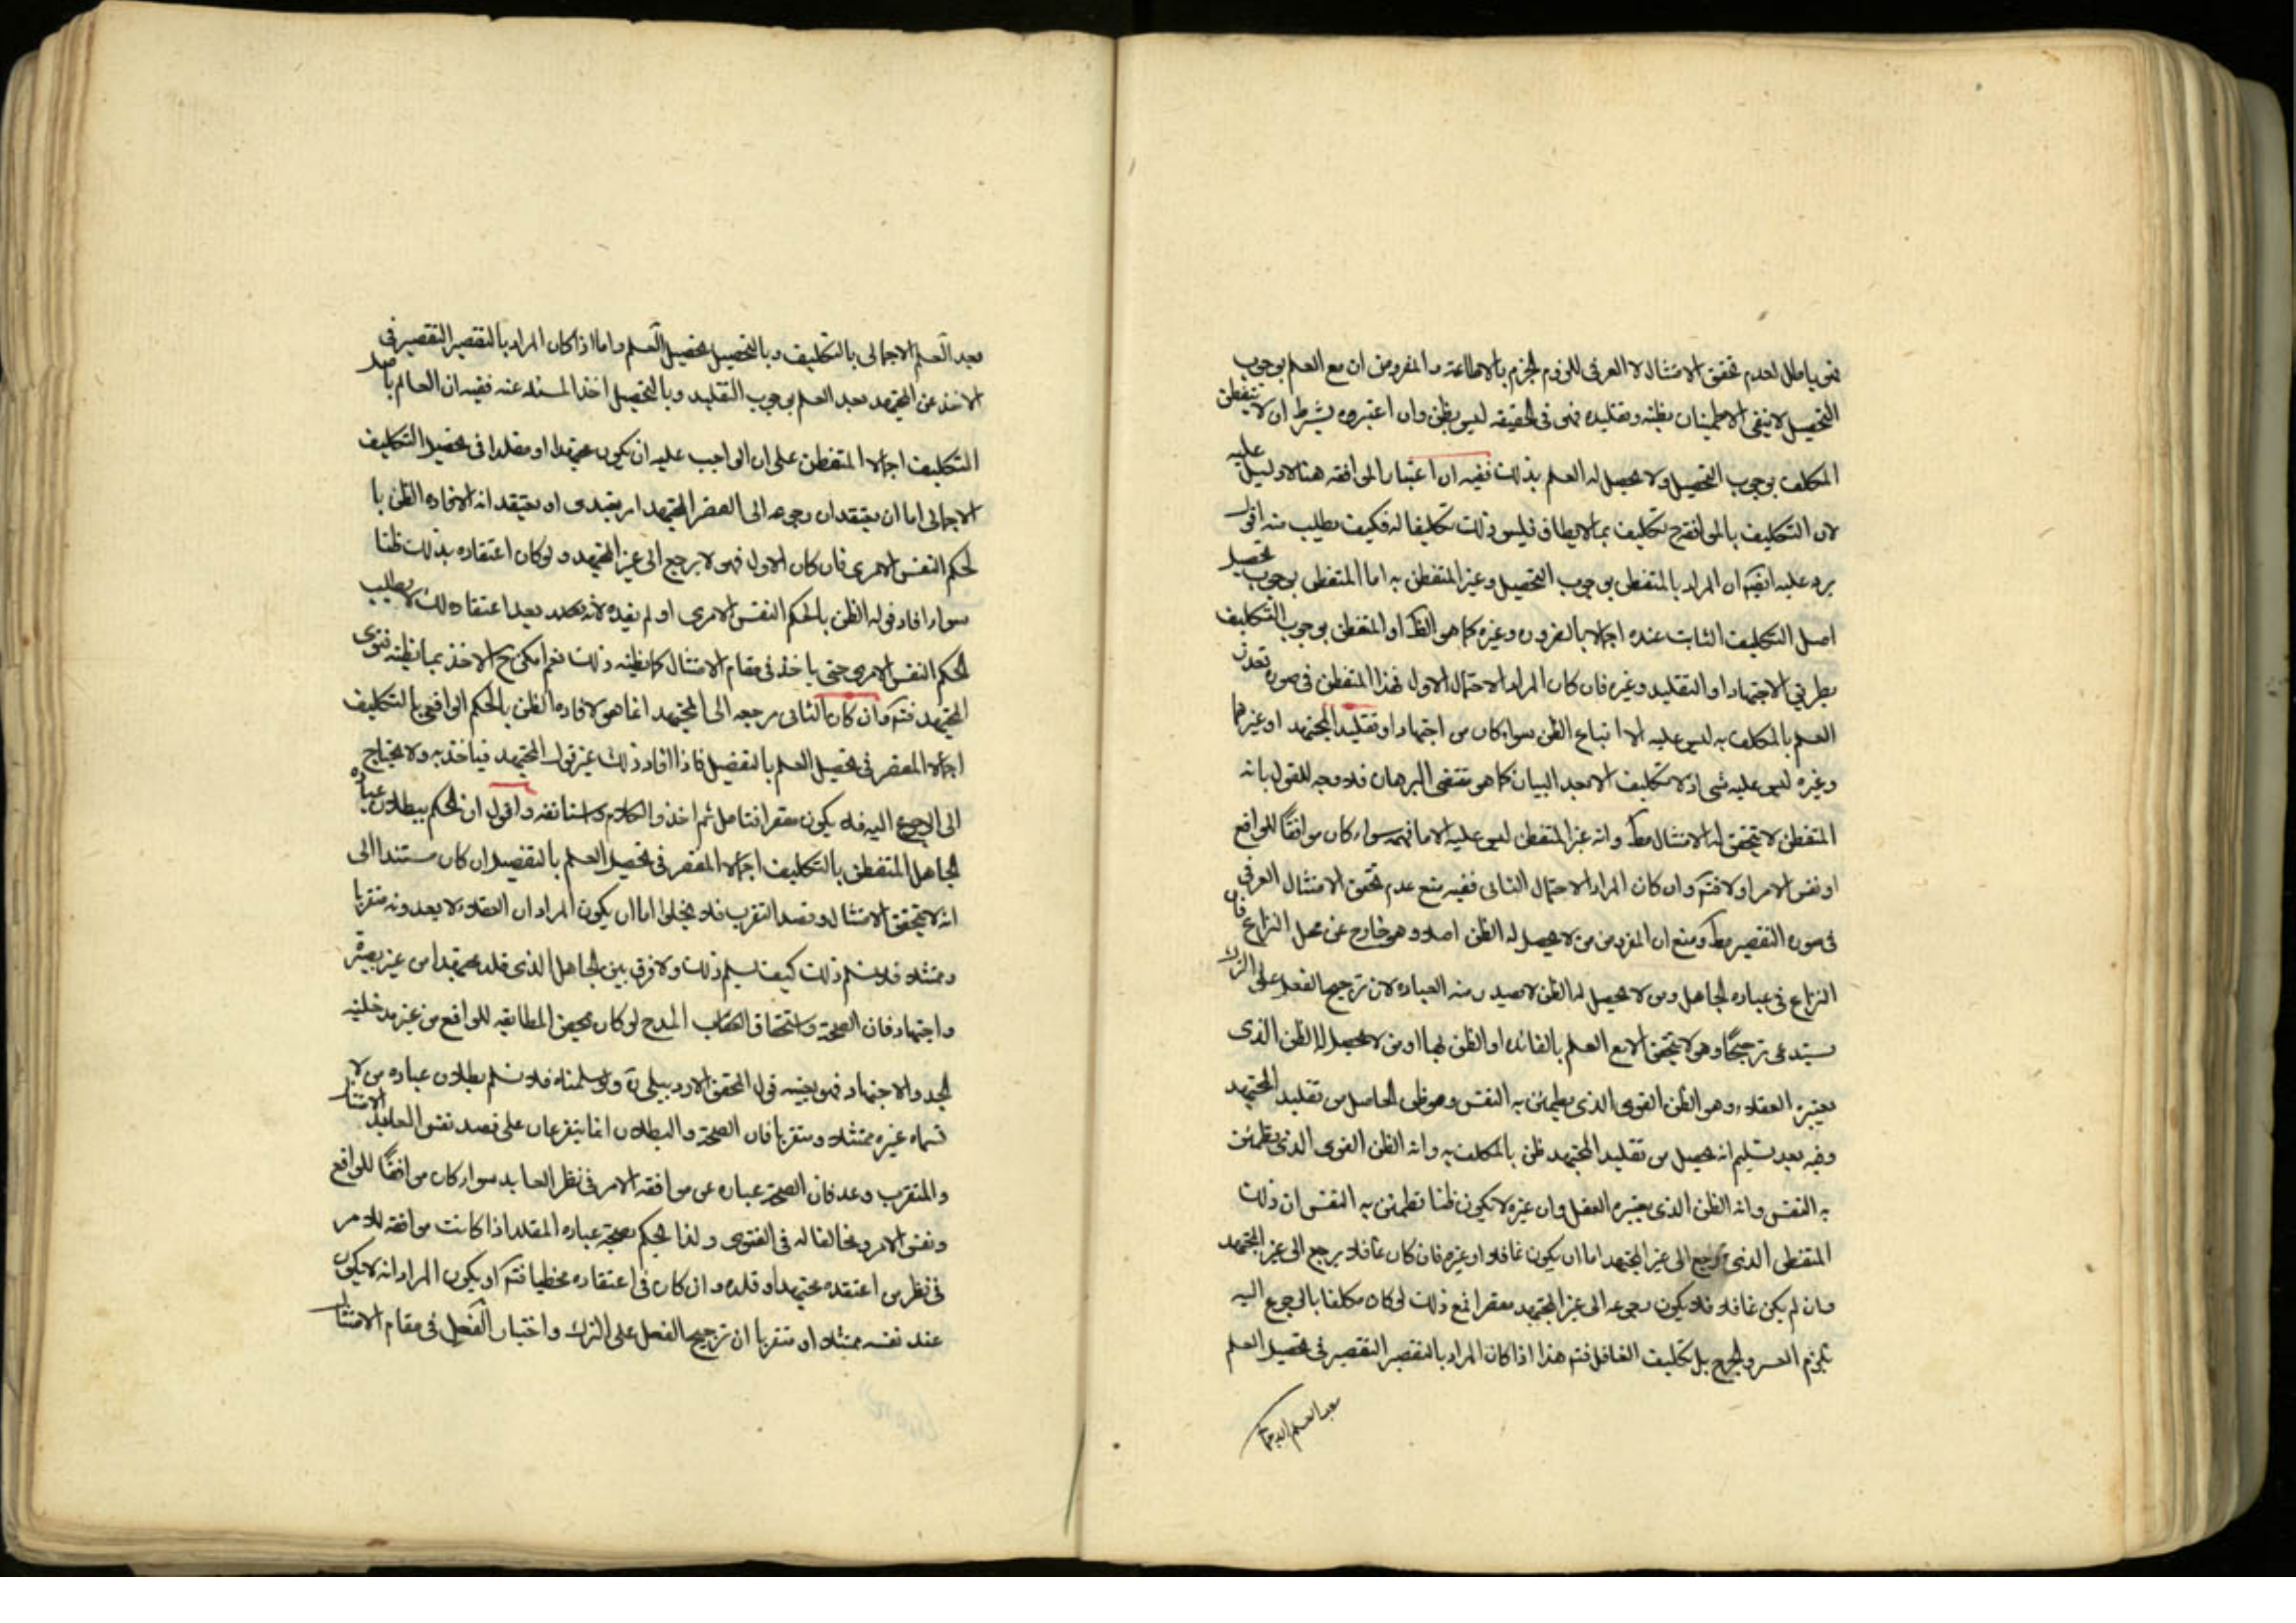 فهى باطل لعدم تحقق الامتثال لا العرفى للزوم الجزم بالاطاعة والمفروض ان مع العلم بوجوب
التحصيل لا يبقى الاطمينان بظنه وتقليده فهى فى الحقيقه ليس بظن وان اعتبروه بشرط ان لا يتفطن
المكلف بوجوب التحصيل ولا يحصل له العلم بذلك ففيه ان اعتبار الموافقه هنا لا دليل عليه
لان التكليف بالموافقة ح تكليف بما لا يطاق فليس ذلك تكليفا له فكيف يطلب منه اقول
يرد عليه ايضا ان المراد بالمتفطن بوجوب التحصيل وغير المتفطن به اما المتفطن بوجوب تحصيل
اصل التكليف الثابت عنده اجمالا بالضروره وغيره كما هو الظ او المتفطن بوجوب التكليف
بطريق الاجتهاد او التقليد وغيره فان كان المراد الاحتمال الاول فهذا المتفطن فى صورة تعذر
العلم بالمكلف به ليس عليه الا اتباع الظن سواء كان من اجتهاد او تقليد المجتهد او غيرهما
وغيره ليس عليه شى اذ لا تكليف الا بعد البيان كما هو مقتضى البرهان فلا وجه للقول بانه
المتفطن لا يتحقق له الامتثال مط وانه غير المتفطن ليس عليه الا ما فهمه سواء كان موافقا للواقع
او نفس الامر اولا فتم وان كان المراد الاحتمال الثانى ففيه منع عدم تحقق الامتثال العرفى
فى صورة التقصير مط ومنع ان المفروض من لا يحصل له الظن اصلا وهو خارج عن محل النزاع فان
النزاع فى عباده الجاهل ومن لا يحصل له الظن لا يصدر منه العباده لان ترجيح الفعل على الترك
يستدعى ترجيحا وهو لا يتحقق الا مع العلم بالفائده او الظن بها او من لا يحصل له الظن الذى
يعتبره العقلاء وهو الظن القوى الذى يطمئن به النفس وهو ظن الحاصل من تقليد المجتهد
وفيه بعد تسليم انه يحصل من تقليد المجتهد ظن بالمكلف به وانه الظن القوى الذى يطمئن
به النفس وانه الظن الذى يعتبره العقل وان غيره لا يكون ظنا تطمئن به النفس ان ذلك
المتفطن الذى يرجع الى غير المجتهد اما ان يكون غافلا او غيره فان كان غافلا يرجع الى غير المجتهد
وان لم يكن غافلا فلا يكون رجوعه الى غير المجتهد مقصرا نمنع ذلك لو كان مكلفا بالرجوع اليه
يلزم العسر والحرج بل تكليف الغافل فتم هذا اذا كان المراد بالتقصير التقصير فى تحصيل العلم
بعد العلم الاجما
بعد العلم الاجمالى بالتكليف وبالتحصيل تحصيل العلم واما اذا كان المراد بالتقصير التقصير فى
الاخذ عن المجتهد بعد العلم بوجوب التقليد وبالتحصيل اخذ المسئله عنه ففيه ان العالم باصل
التكليف اجمالا المتفطن على ان الواجب عليه ان يكون مجتهدا او مقلدا فى تحصيل التكليف
الاجمالى اما ان يعتقد ان رجوعه الى المجتهد امر تعبدى او يعتقد انه لافاده الظن با
لحكم النفس الامرى فان كان الاول فهو لا يرجع الى غير المجتهد ولو كان اعتقاده بذلك ظنا
سواء افاد قوله الظن بالحكم النفس الامرى او لم يفده لانه بعد اعتقاد ذلك لا يطلب
الحكم النفس الامرى حتى ياخذ فى مقام الامتثال كما يظنه ذلك نعم يمكن ح الاخذ بما يظنه فتوى
المجتهد فتم وان كان الثانى مرجعه الى المجتهد انما هو لافاده الظن بالحكم الواقعى بالتكليف
اجمالا المقصر فى تحصيل العلم بالتفصيل فاذا افاد ذلك غير قول المجتهد فياخذ به ولا يحتاج
الى الرجوع اليه فلا يكون مقصرا فتامل ثم اخذ والكلام واستانفه واقول ان الحكم ببطلان عباده
الجاهل المتفطن بالتكليف اجمالا المقصر فى تحصيل العلم بالتفصيل ان كان مستندا الى
انه لا يتحقق الامتثال وقصد التقرب فلا يخلوا اما ان يكون المراد ان العقلاء لا يعدونه متقربا
وممتثلا فلا نسلم ذلك كيف نسلم ذلك ولا فرق بين الجاهل الذى قلد مجتهدا من غير بصيرة
واجتهاد فان الصحة واستحقاق المدح لو كان بمحض المطابقه للواقع من غير مدخلية
الجد والاجتهاد فهو بعينه قول المحقق الاردبيلى ره ولو سلمناه فلا نسلم بطلان عباده من لا
نراه غيره ممتثلا ومتقربا فان الصحة والبطلان انما يتفرعان على قصد نفس العامل الامتثال
والمتقرب وعد فان الصحة عباره عن موافقة الامر فى نظر العابد سواء كان موافقا للواقع
ونفس الامر ومخالفا له فى الفتوى ولذا يحكم بصحة عباده المقلد اذا كانت موافقه للامر
فى نظر من اعتقده مجتهدا وقلده وان كان فى اعتقاده مخطيا فتم او يكون المراد انه لا يكون
عند نفسه ممتثلا او متقربا ان ترجيح الفعل على الترك واختيار الفعل فى مقام الامتثال